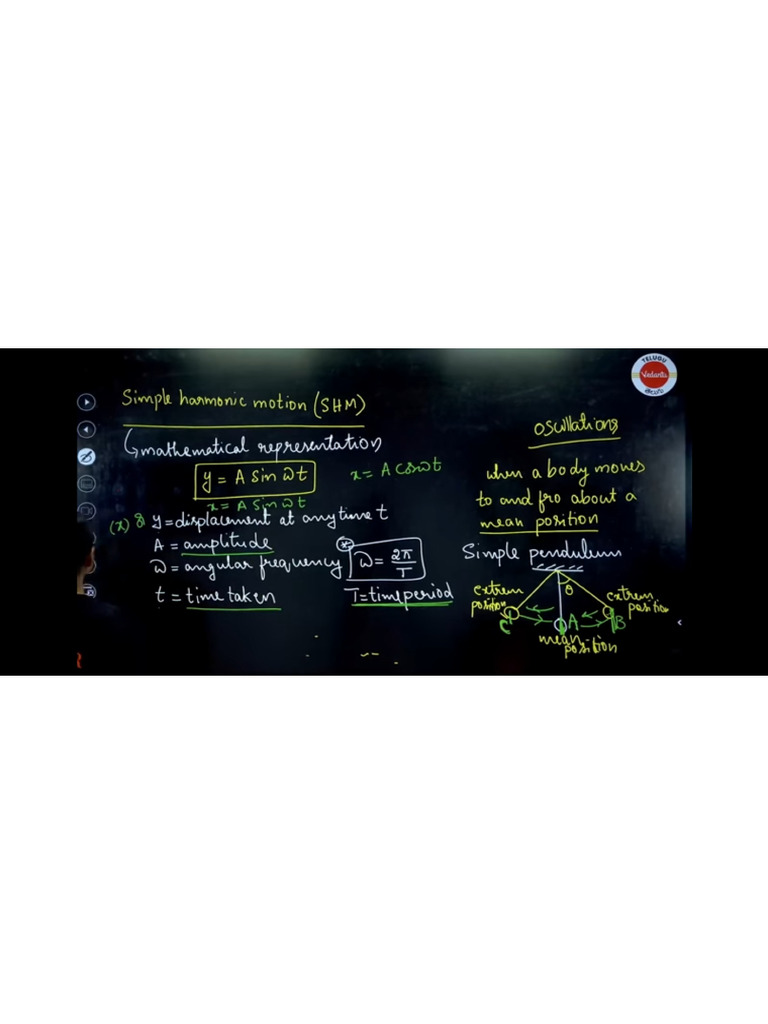 TELUGU
Vedantu
తెలుగు
Simple harmonic motion (SHM)
↳ mathematical representation
y = A sin ωt
x = A cosωt
x = A sin ωt
(x) & y = displacement at any time t
A = amplitude
ω = angular frequency
ω = 2π/T
t = time taken
T = time period
oscillations
when a body moves
to and fro about a
mean position
Simple pendulum
θ
extrem
position
extrem
position
C
A
B
mean
position